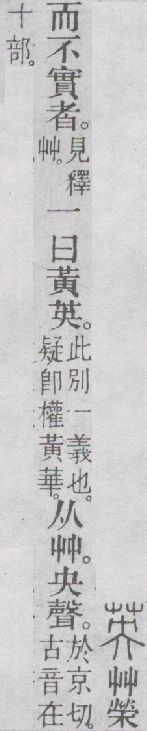 英艸榮
而不實者。見釋艸。一曰黃英。此別一義也。疑卽權黃華。从艸。央聲。於京切。古音在
十部。